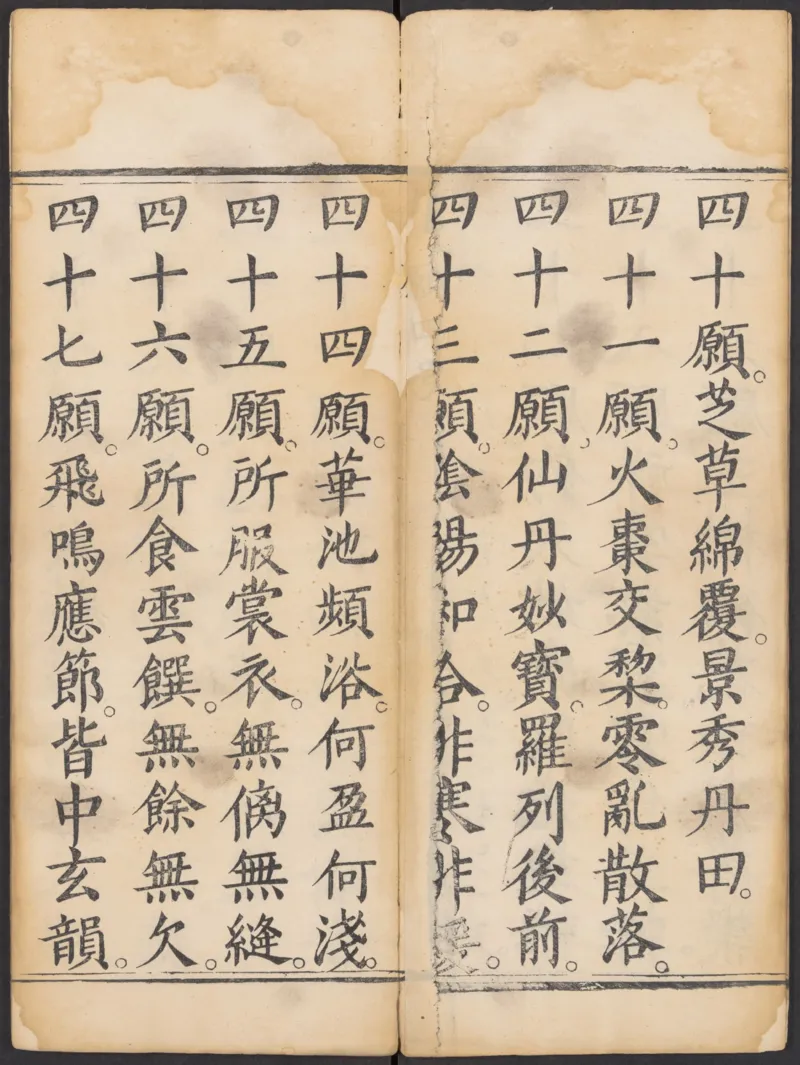 四十願。芝草綿覆。景秀丹田。
四十一願。火棗交棃。零亂散落。
四十二願。仙丹妙寶。羅列後前。
四十三願。陰陽和合。非寒非煖。
四十四願。華池頻浴。何盈何淺。
四十五願。所服裳衣。無傷無縫。
四十六願。所食雲饌。無餘無欠。
四十七願。飛鳴應節。皆中玄韻。